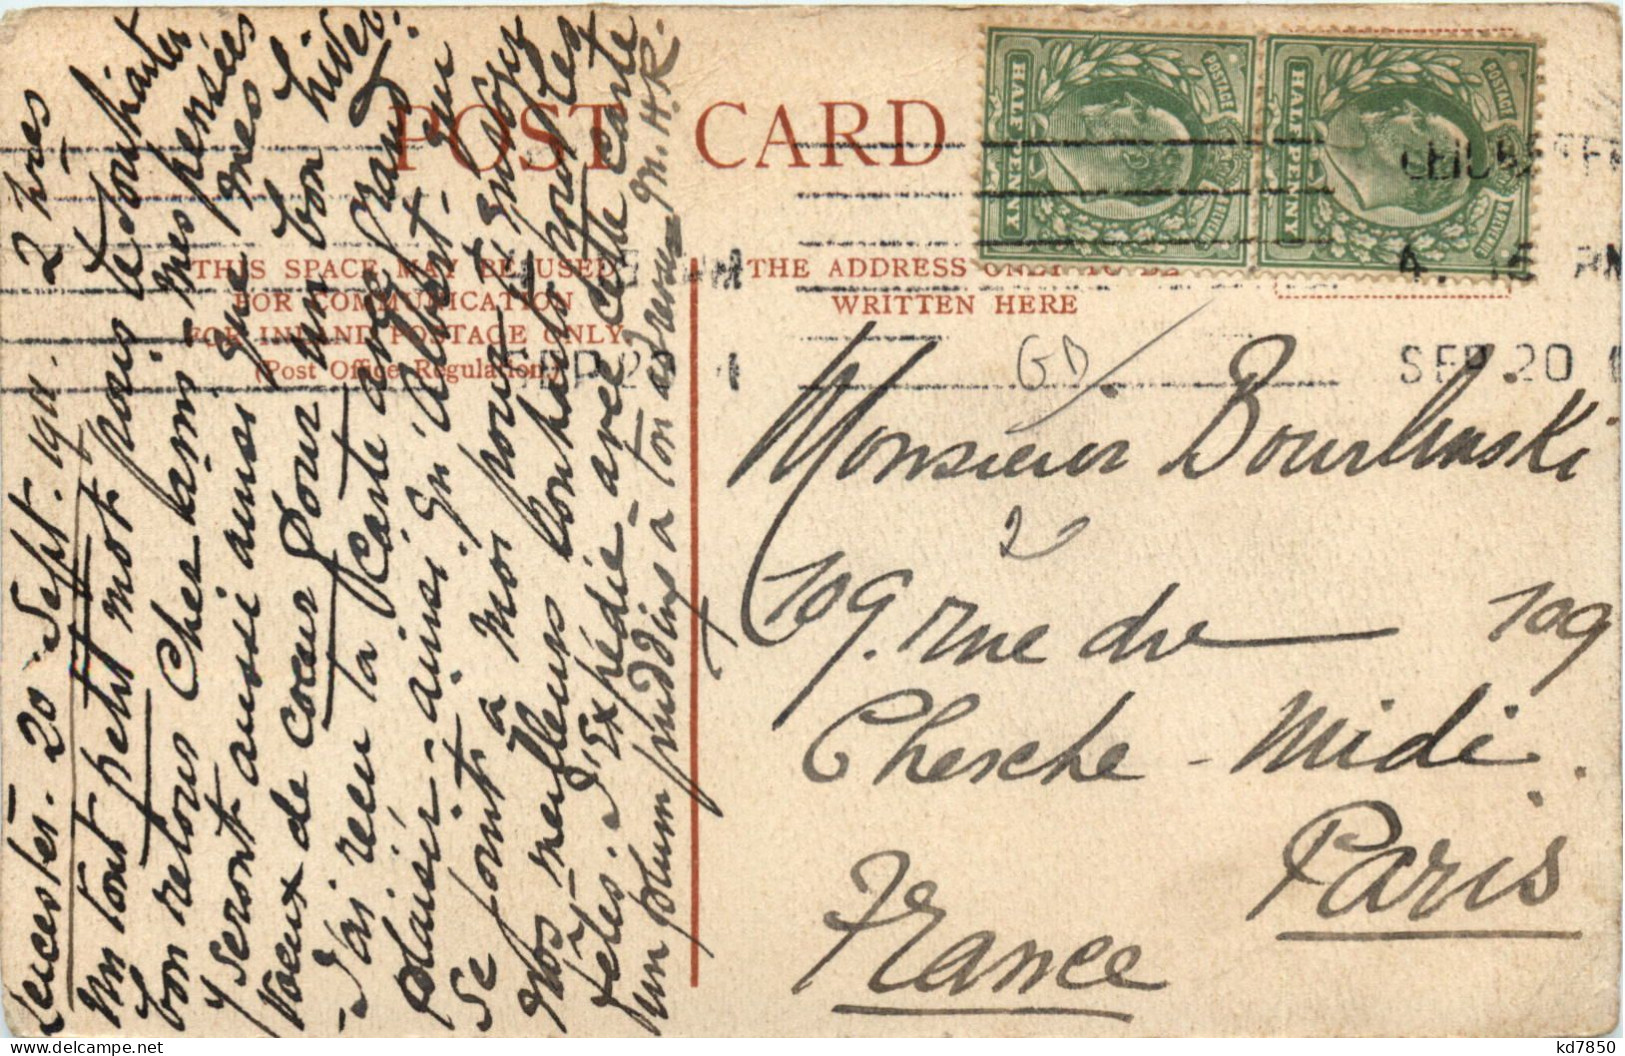 POST CARD
THIS SPACE MAY BE USED
FOR COMMUNICATION
FOR INLAND POSTAGE ONLY
(Post Office Regulation.)
THE ADDRESS ONLY TO BE
WRITTEN HERE
HALF PENNY
POSTAGE
HALF PENNY
POSTAGE
LEICESTER
4. 15 PM
SEP 20
SEP 20
GD
Leicester. 20 Sept. 1911. 2 hres
Un tout petit mot pour te souhaiter
bon retour Cher ami - mes pensées
y seront aussi ainsi que mes
Voeux de coeur pour un bon hiver.
- J'ai reçu ta carte avec grand
plaisir - ainsi qu'Albert - qui
se joint à moi pour t'envoyer
nos meilleurs
. J'expédie avec cette carte
un plum pudding à ton adresse - M.H.R.
Monsieur
2
109. rue du 109
Cherche - Midi.
Paris
France
kd7850